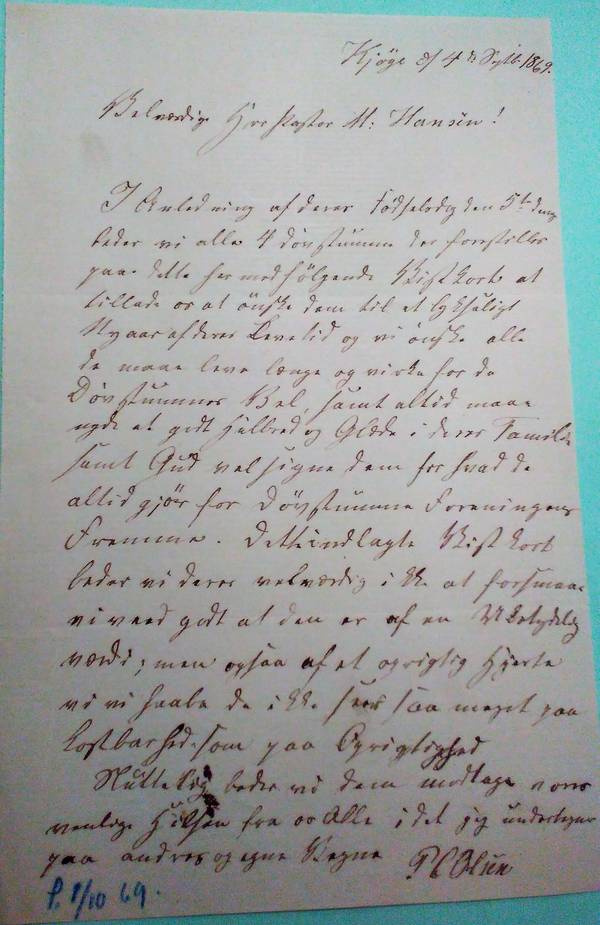 Kjöge d 4de Septb. 1869.
Velværdige Herr Pastor M: Hansen!
I Anledning af deres Födselsdag den 5te dennes
beder vi alle 4 dövstumme der forestilles
paa dette her medfölgende Visitkort at
tillade os at önske dem til et lyksaligt
Nyaar af deres Levetid og vi önske alle
de maae leve længe og virke for de
Dövstummes Vel, samt altid maae
nyde et godt Helbred og Glæde i deres Familie
samt Gud velsigne dem for hvad de
altid gjör for Dövstumme Foreningens
Fremme. Dette indlagte Visitkort
beder vi deres velværdig ikke at forsmaae
vi veed godt at den er af en Ubetydelig
værdi; men ogsaa af et oprigtig Hjerte
vi vi haabe de ikke seer saa meget paa
Kostbarhed som paa Oprigtighed
Sluttelig beder vi dem modtage vores
venlige Hilsen fra os Alle idet jeg undertegner
paa andres og egne Vegne P C Olsen
f. 1/10 69.